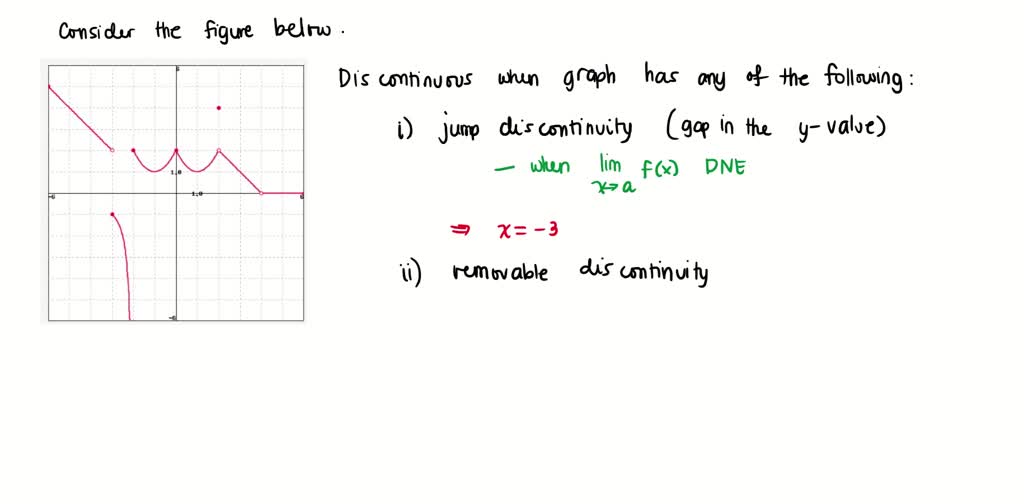 Consider the figure below.
Discontinuous when graph has any of the following:
i) jump discontinuity (gap in the y-value)
— when lim x→a f(x) DNE
⇒ x = -3
ii) removable discontinuity
6
1.0
-6
1.0
6
-6